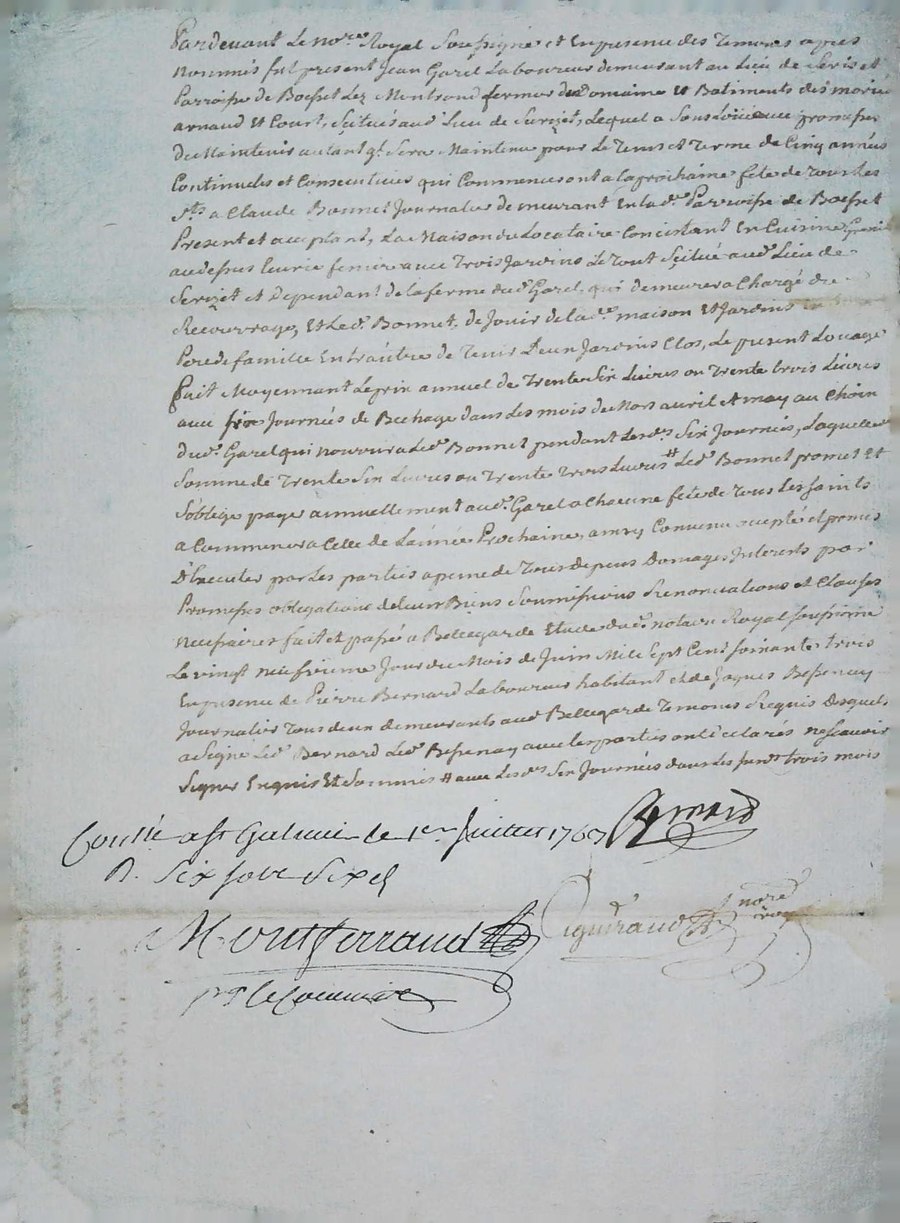 Pardevant Le no.re Royal Soussigné et En presence des Temoins apres
Nommés fut present Jean Garel Laboureur demeurant au Lieu de
Parroisse de Boisset Lez Montrond fermier du Domaine et Batiments des
arnaud Et Court, Scitués aud. Lieu de Serizet, Lequel a Sousloüé avec promesse
de Maintenir autant q.l Sera Maintenu pour Le Tems et Terme de Cinq années
Continuelles et Consecutives qui Commenceront a la prochaine fête de Tous Les
S.ts a Claude Bonnet Journalier demeurant En lad.e Parroisse de Boisset
Present et acceptant, La Maison du Locataire Concistant En Cuisine Grenier
au dessus Ecurie feniere avec Trois Jardins Le Tout Scitué aud. Lieu de
Serizet et Dependant de la ferme dud. Garel, qui demeurera Chargé du
Recouvrage, Et Led. Bonnet, de Jouir de lad.e maison Et Jardins
Pere de famille Entr'autres de Tenir Jardins Clos, Le present Loüage
fait Moyennant Le prix annuel de Trente Six Livres ou Trente trois Livres
avec six Journées de Bechage dans Les mois de Mars avril et may au Choix
dud. Garel qui nourrira Led. Bonnet pendant Lesd.s Six Journées, Laquelle
Somme de Trente Six Livres ou Trente Trois Livres # Led. Bonnet promet Et
S'oblige payer annuellement aud. Garel a Chacune fête de Tous Les Saints
a Commencer a Celle de L'année Prochaine, ainsy Convenu accepté et promis
D'Executer par Les parties a peine de Tous depens Domages Interests par
Promesses obligations de Leurs Biens Soumissions Renonciations et Clauses
Necessaires fait et passé a Bellegarde Etude du notaire Royal soussigné
Le vingt neufvieme Jour du Mois de Juin Mile Sept Cent soixante trois
En presence de Pierre Bernard Laboureur habitant et de Jaques Bessenay
Journalier Tous deux demeurants aud. Bellegarde Temoins Requis Desquels
a Signé Led. Bernard Led. Bessenay avec les parties ont declarés ne scavoir
Signer Enquis Et Sommés # avec Lesd.s Six Journées dans Les susd.s trois mois
Controllé a St Galmier le 1er Juillet 1763 Bernard
R. Six sols Six d
Montferrand
Ciguiraud no.re royal